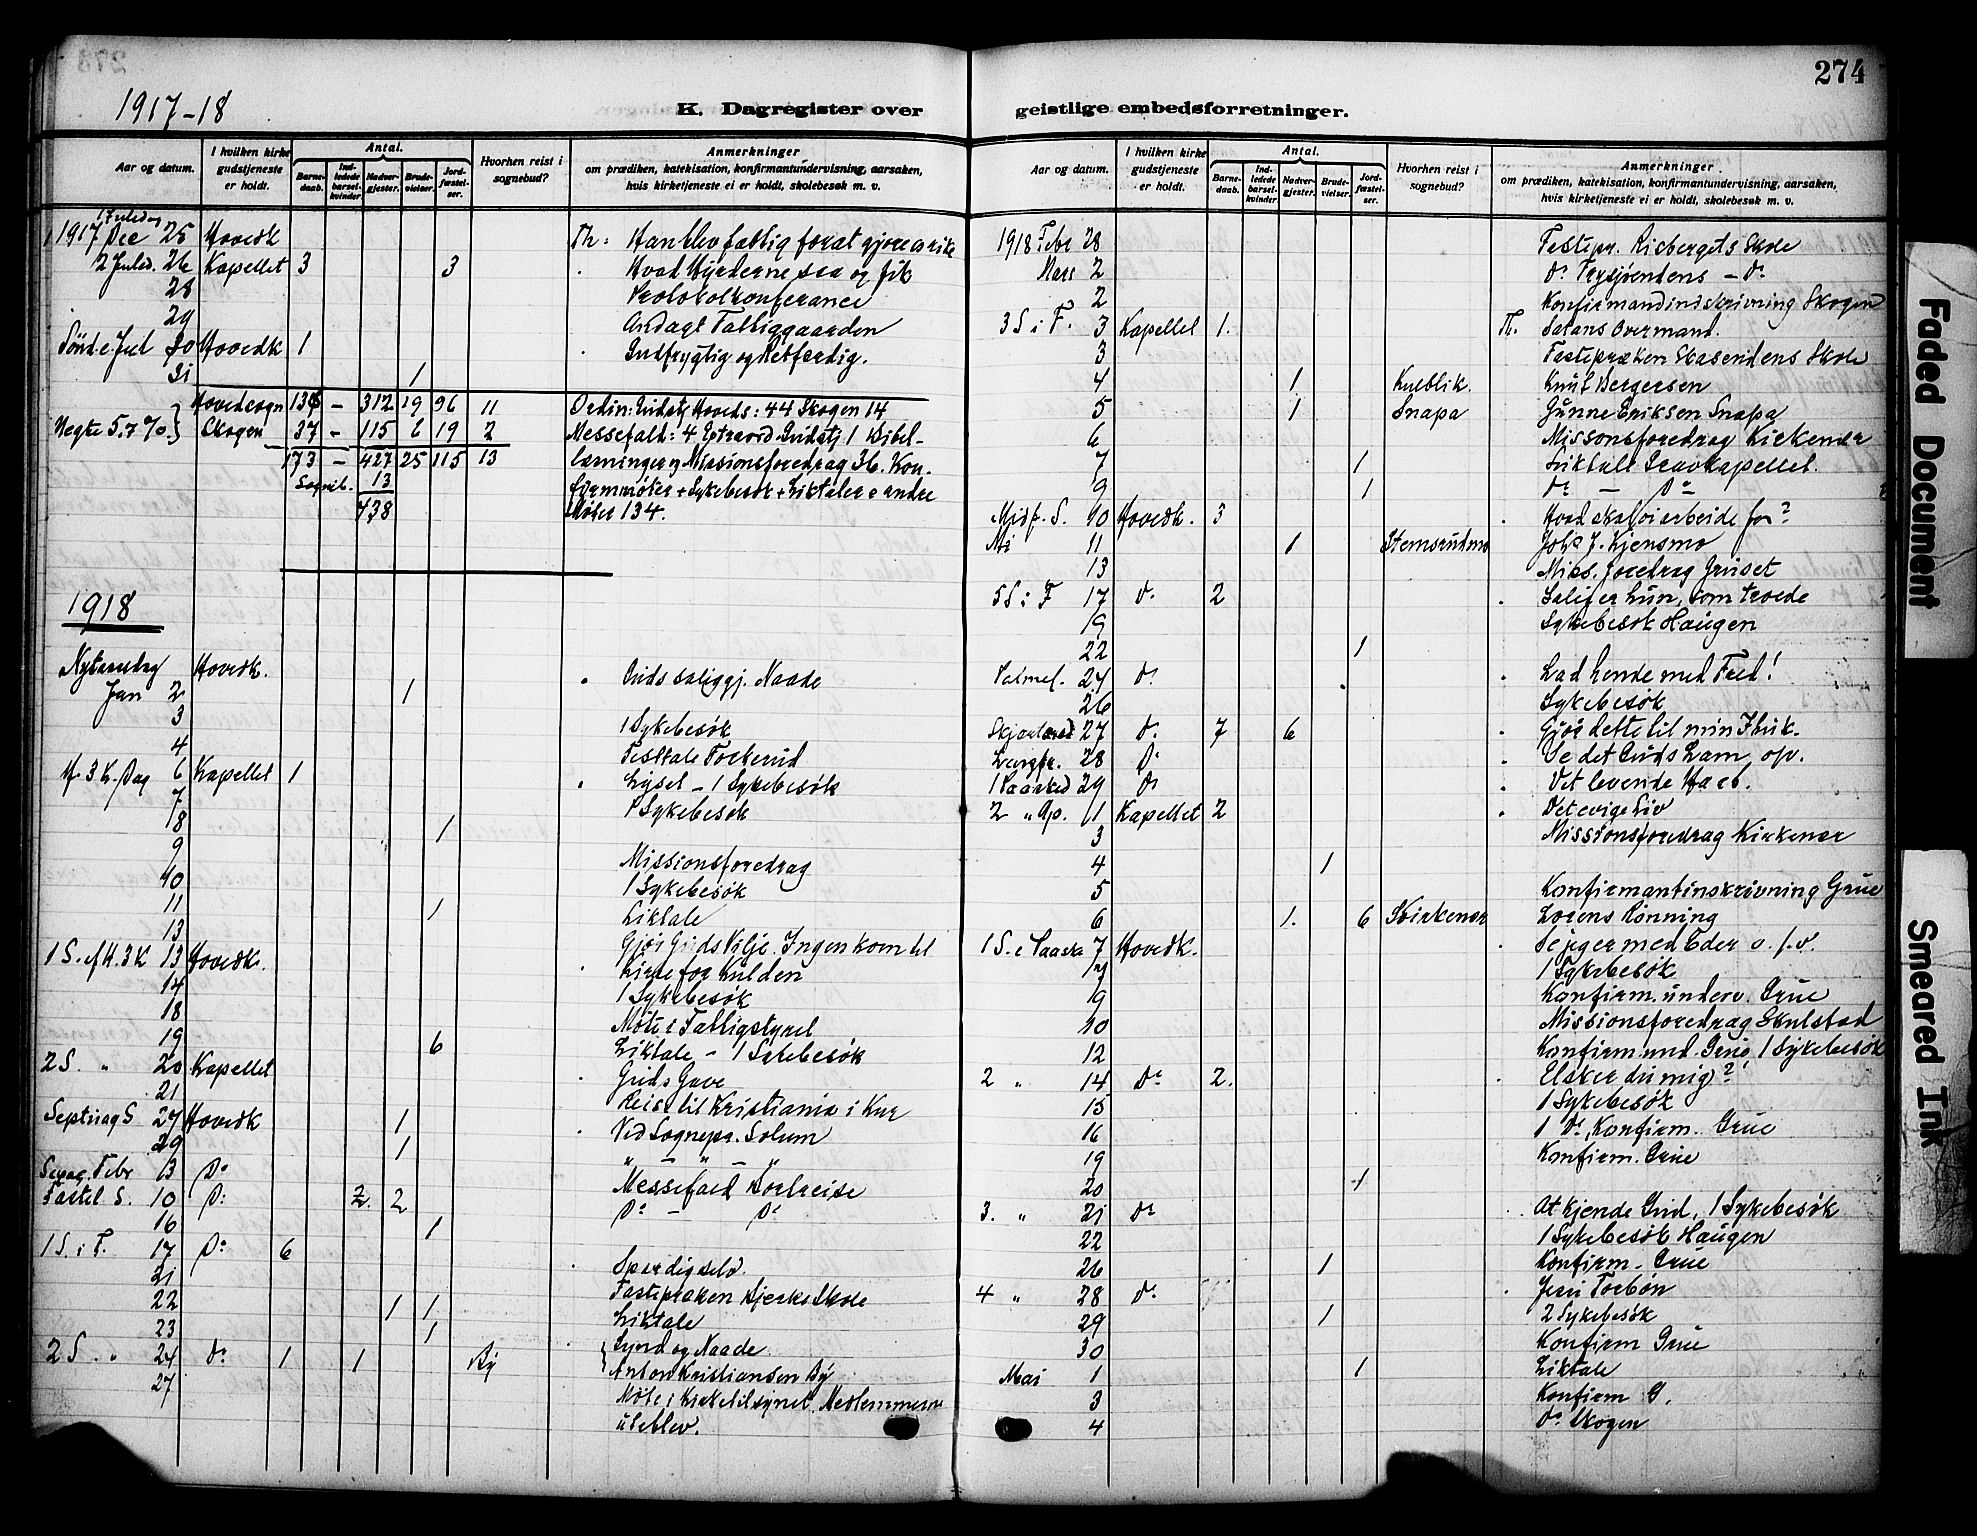 274
1917-18
K. Dagregister over geistlige embedsforretninger.
Aar og datum. I hvilken kirke gudstjeneste er holdt. Antal. Barnedaab. Indledede barselkvinder. Nadvergjester. Brudevielser. Jordfæstelser. Hvorhen reist i sognebud? Anmerkninger om prædiken, katekisation, konfirmantundervisning, aarsaken, hvis kirketjeneste ei er holdt, skolebesøk m. v.
1 Juledag
1917 Dec 25 Hovedk Th: Han blev fattig for at gjøre os rike
2 Juled. 26 Kapellet 3 3 Hvad Hyrderne saa og fik
28 Protokolkonferance
29 Andagt Fattiggaarden
Sønd e. Jul 30 Hovedk 1 Gudfrygtig og Retfærdig.
31 1
Hovedsogn 136 - 312 19 96 11 Ordin: Gudstj Hoveds: 44 Skogen 14
Skogen 37 - 115 6 19 2 Messefald: 4 Extraord. Gudstj 1 Bibel-
173 - 427 25 115 13 læsninger og Missionsforedrag 36. Kon-
Sogneb. 13 firmmøter + Sykebesøk + Liktaler o andre
438 Møter 134.
1918
Nytaarsdag Hovedk. Guds saliggj. Naade
Jan 2 1
3 1 Sykebesøk
4
H. 3 K. Dag 6 Kapellet 1 Lyset - 1 Sykebesøk
7 1 Sykebesøk
18 1
9 Missionsforedrag
10 1 Sykebesøk
11 1 Liktale
13
1 S. e H. 3 K 13 Hovedk. Gjør Guds Vilje. Ingen kom til
14 Kirke for Kulden
18 1 Sykebesøk
19 6 Møte i Fattigstyret
2 S. " 20 Kapellet Liktale - 1 Sykebesøk
21 Guds Gave
Reise til Kristiania i Kur
Septuag S 27 Hovedk 1 Ved Sognepr. Solum
29 1 " - " - "
Sexag. Febr 3 Do Messefald Bortreise
Fastel S. 10 Do 2. 2 Do - Do
16 1
1 S. i F. 17 Do 6
21 Fastepræken Bjerke Skole
22 1 1 Liktale
23 1
2 S. " 24 Do 1 1 By Synd og Naade
27 Anton Kristiansen By
Møte i Kirketilsynet. Medlemmerne
uteblev.
Aar og datum. I hvilken kirke gudstjeneste er holdt. Antal. Barnedaab. Indledede barselkvinder. Nadvergjester. Brudevielser. Jordfæstelser. Hvorhen reist i sognebud? Anmerkninger om prædiken, katekisation, konfirmantundervisning, aarsaken, hvis kirketjeneste ei er holdt, skolebesøk m. v.
1918 Febr 28 Fastepr. Risbergets Skole
Mars 2 Do Frysjøendens - Do
2 Konfirmandindskrivning Skogen
3 S i F. 3 Kapellet 1. Th. Satans Overmand.
3 Fastepræken Skasendens Skole
4 1 Kulblik. Knut Bergersen
5 1 Snapa Gunne Eriksen Snapa
6 Missonsforedrag Kirkenær
7 1 Liktale Gravkapellet.
9 1 Do - Do
Midf. S. 10 Hovedk. 3 Hvad skal vi arbeide for?
11 1 Stemsrudmo Johs J. Kjensmo
13 Miss. foredrag Gruset
5 S i F 17 Do 2 Salig er hun, som troede
19 Sykebesøk Haugen
22 1
Palmes. 24 Do Lad hende med Fred!
26 Sykebesøk
Skjærtorsd 27 Do 7 6 Gjør dette til min Ihuk.
Langfr. 28 Do Se det Guds Lam, o.s.v.
1 Paasked 29 Do Det levende Haab.
2 " Ap. 1 Kapellet 2 Det evige Liv
3 Missionsforedrag Kirkenær
4 1
5 Konfirmantinskrivning Grue
6 1. 6 Kirkenær Lorens Rønning
1 S. e Paaske 7 Hovedk. Seger med Eder o. s. v.
1 Sykebesøk
9 Konfirm. underv. Grue
10 Missionsforedrag Skulstad
12 Konfirm und. Grue, 1 Sykebesøk
2 " 14 Do 2. Elsker du mig?
15 1 Sykebesøk
16 1 Do, Konfirm. Grue
19 Konfirm. Grue
20 1
3. " 21 Do At kjende Gud, 1 Sykebesøk
22 1 Sykebesøk Haugen
26 1 Konfirm. Grue
4 " 28 Do Jesu Forbøn
29 1 2 Sykebesøk
30 Konfirm Grue
Mai 1 1 Liktale
3 Konfirm G.
4 Do Skogen
Faded Document
Smeared Ink